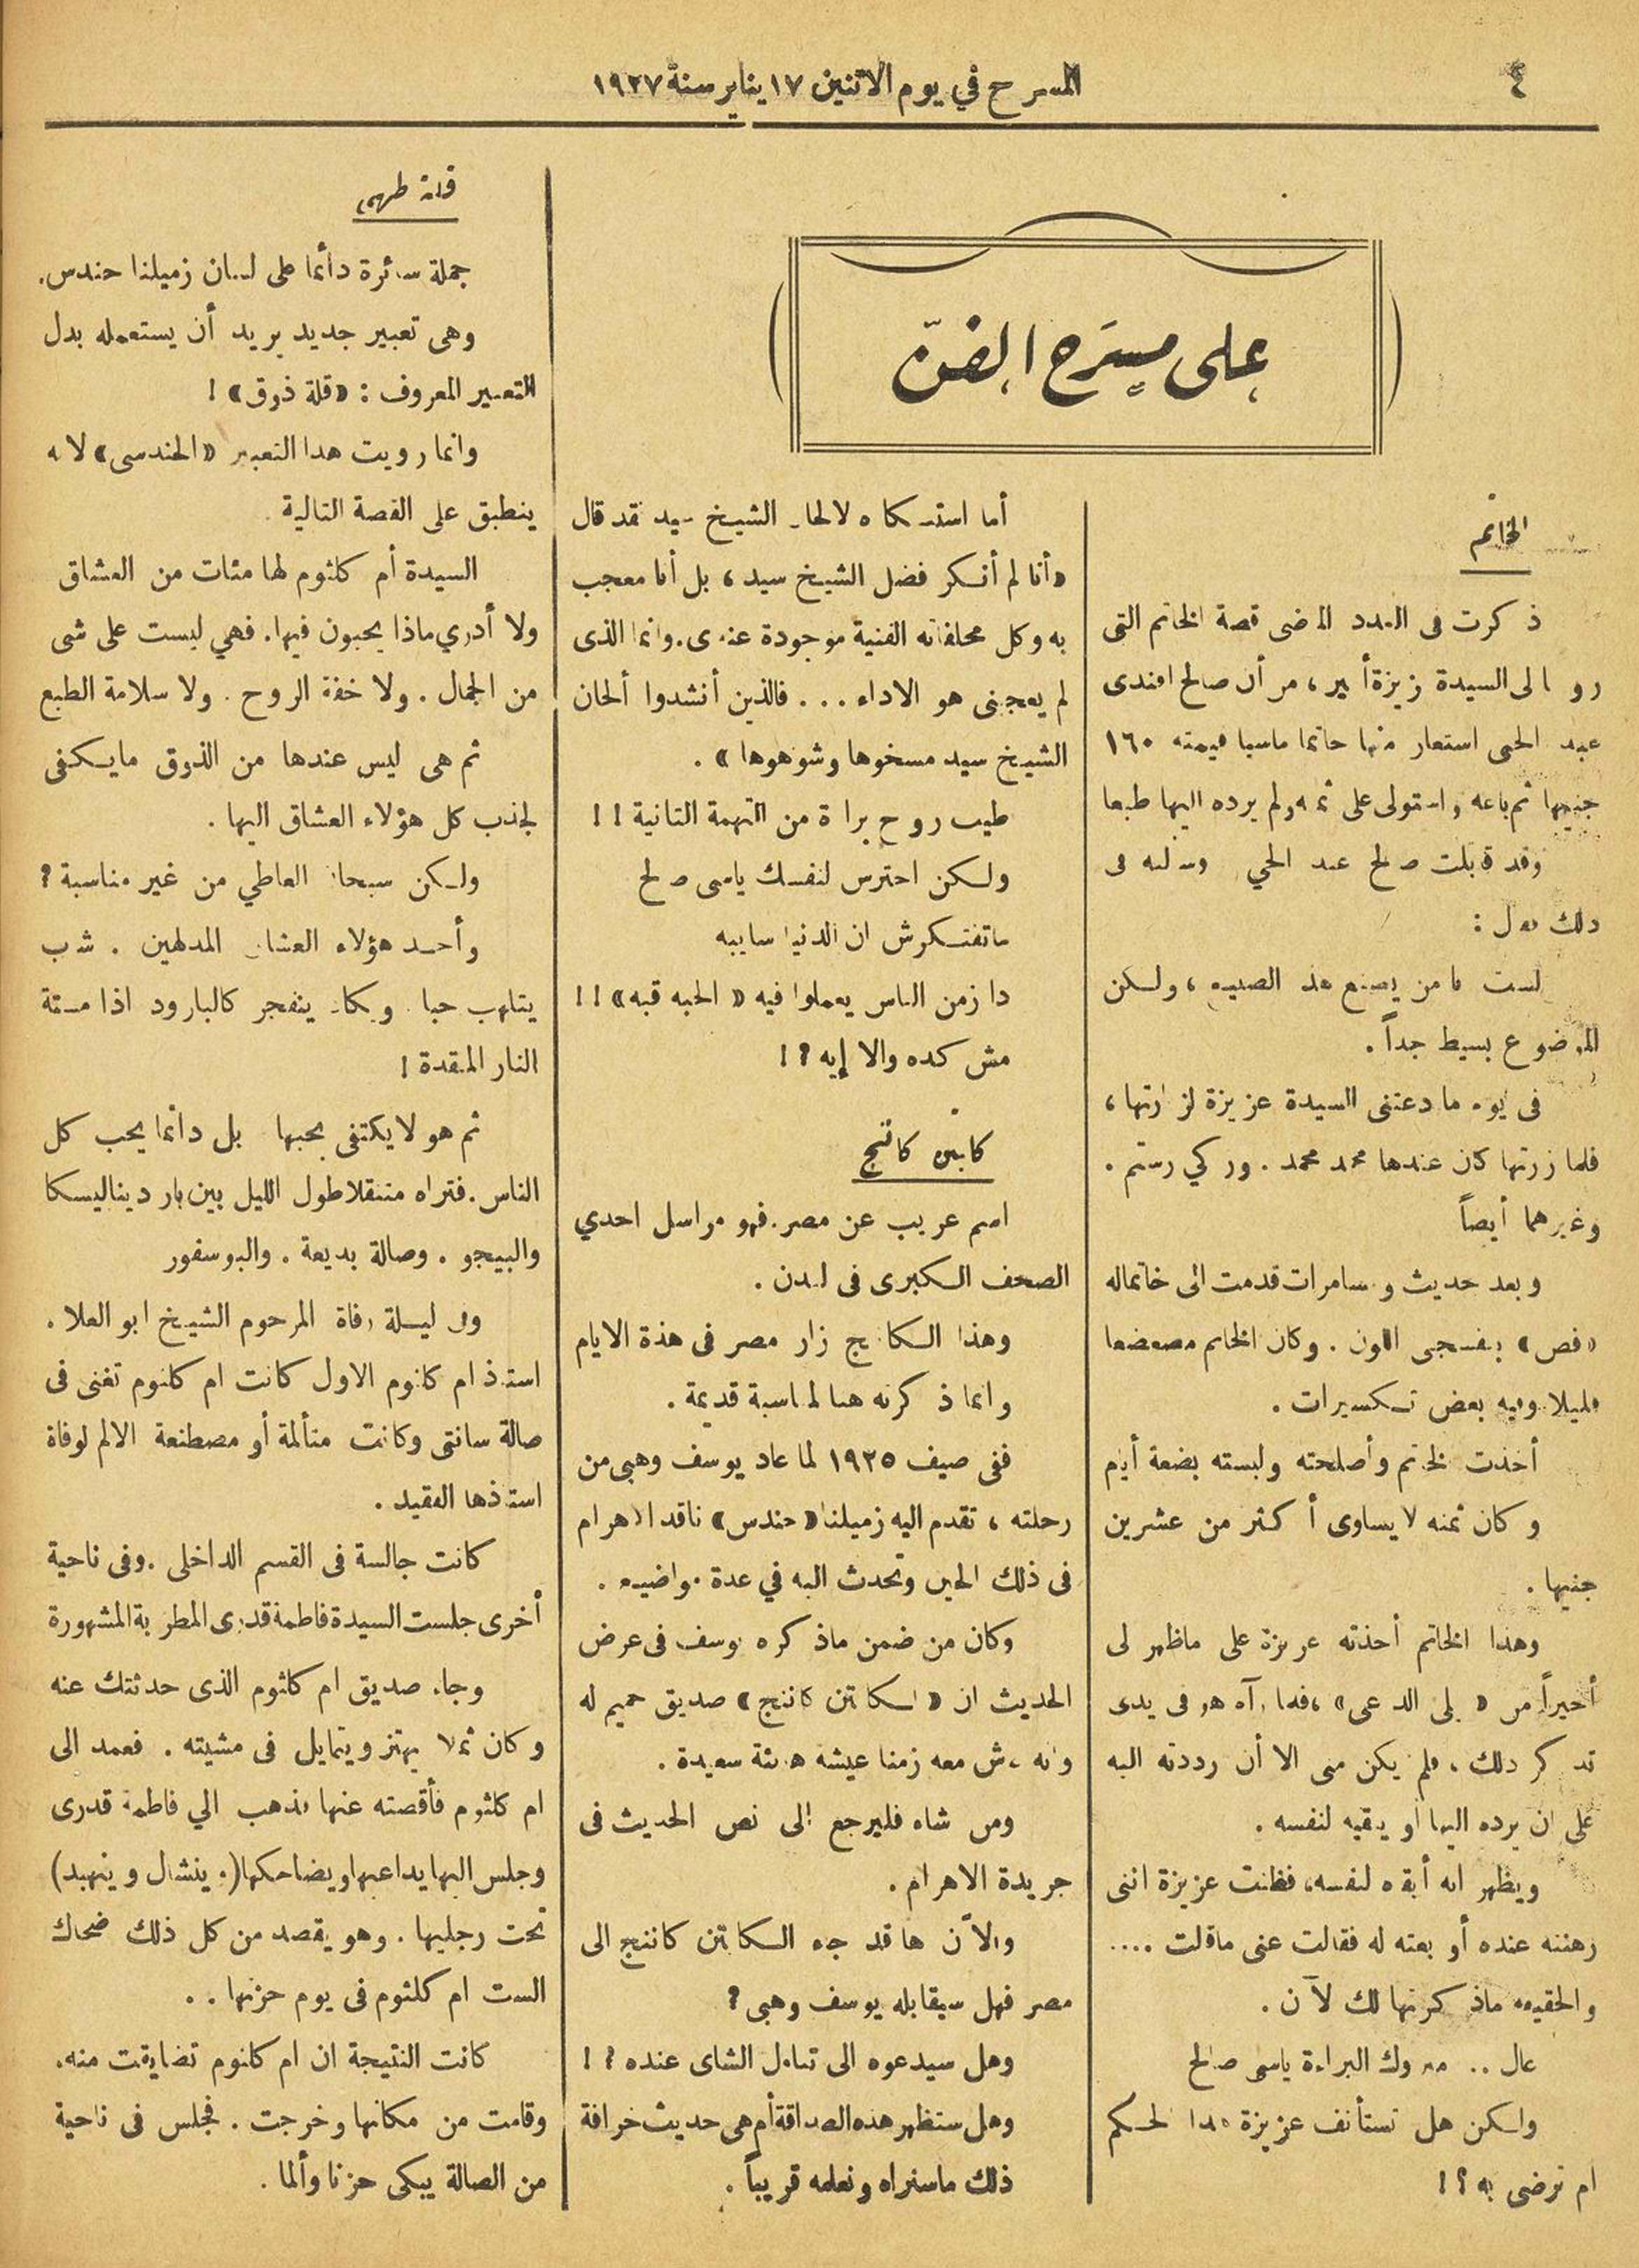 ٤
المسرح في يوم الاثنين ١٧ يناير سنة ١٩٢٧
على مسرح الفن
الخاتم
ذكرت فى العدد الماضى قصة الخاتم التى
الى السيدة عزيزة أمير، من أن صالح افندى
عبد الحى استعار منها خاتما ماسيا قيمته ١٦٠
جنيها ثم باعه واستولى على ثمنه ولم يرده اليها طبعا
وقد قابلت صالح عبد الحي وسألته فى
ذلك فقال :
لست من يصنع هذا الصنيع ، ولكن
الموضوع بسيط جداً .
فى يوم ما دعتنى السيدة عزيزة لزيارتها ،
فلما زرتها كان عندها محمد محمد . وزكي رستم .
وغيرهما أيضاً
وبعد حديث ومسامرات قدمت الى خاتما له
«فص» بنفسجى اللون . وكان الخاتم مضعضعا
قليلا وفيه بعض تكسيرات .
أخذت الخاتم وأصلحته ولبسته بضعة أيام
وكان ثمنه لا يساوى أكثر من عشرين
جنيها .
وهذا الخاتم أخذته عزيزة على ماظهر لى
أخيراً من « الدعى» ، فلما رآه هو فى يدى
تذكر ذلك ، فلم يكن منى الا أن رددته اليه
على ان يرده اليها أو يبقيه لنفسه .
ويظهر انه أبقاه لنفسه، فظنت عزيزة اننى
رهنته عنده أو بعته له فقالت عنى ماقالت ....
والحقيقة ماذكرتها لك الآن .
عال .. مبروك البراءة ياسى صالح
ولكن هل تستأنف عزيزة هذا الحكم
ام ترضى به ؟ !
أما استنكاره لالحان الشيخ سيد فقد قال
«أنا لم أنكر فضل الشيخ سيد ، بل أنا معجب
به وكل مخلفاته الفنية موجودة عندى . وانما الذى
لم يعجبنى هو الاداء ... فالذين أنشدوا ألحان
الشيخ سيد مسخوها وشوهوها » .
طيب روح براءة من التهمة الثانية ! !
ولكن احترس لنفسك ياسى صالح
ماتفتكرش ان الدنيا سايبه
دا زمن الناس يعملوا فيه « الحبه قبه» ! !
مش كده والا إيه ؟ !
كابتن كاننج
اسم غريب عن مصر . فهو مراسل احدي
الصحف الكبرى فى لندن .
وهذا الكاننج زار مصر فى هذة الايام
وانما ذكرته هنا لمناسبة قديمة .
ففى صيف ١٩٢٥ لما عاد يوسف وهبى من
رحلته ، تقدم اليه زميلنا «حندس» ناقد الاهرام
فى ذلك الحين وتحدث اليه في عدة مواضيع .
وكان من ضمن ماذكره يوسف فى عرض
الحديث ان « الكابتن كاننج » صديق حميم له
وانه عاش معه زمنا عيشه هنيئة سعيدة .
ومن شاء فليرجع إلى نص الحديث فى
جريدة الاهرام .
والآن ها قد جاء الكابتن كاننج الى
مصر فهل سيقابله يوسف وهبى ؟
وهل سيدعوه الى تناول الشاى عنده ؟ !
وهل ستظهر هذه الصداقة أم هى حديث خرافة
ذلك ماسنراه ونعلمه قريباً .
قلة طهى
جملة سائرة دائما على لسان زميلنا حندس .
وهى تعبير جديد يريد أن يستعمله بدل
التعبير المعروف : «قلة ذوق» !
وانما رويت هذا التعبير «الحندسى» لانه
ينطبق على القصة التالية .
السيدة أم كلثوم لها مئات من العشاق
ولا أدري ماذا يحبون فيها . فهي ليست على شى
من الجمال . ولا خفة الروح . ولا سلامة الطبع
ثم هى ليس عندها من الذوق مايكفى
لجذب كل هؤلاء العشاق اليها .
ولكن سبحان العاطي من غير مناسبة ؟
وأحد هؤلاء العشاق المدلهين . شاب
يتلهب حبا . ويكاد ينفجر كالبارود اذا مسته
النار المتقدة !
ثم هو لا يكتفى بحبها بل دائما يحب كل
الناس . فتراه متنقلا طول الليل بين بار ديناليسكا
والبيجو . وصالة بديعة . والبوسفور
وفى ليلة وفاة المرحوم الشيخ ابو العلا .
استاذ ام كلثوم الاول كانت ام كلثوم تغنى فى
صالة سانتى وكانت متألمة أو مصطنعة الالم لوفاة
استاذها الفقيد .
كانت جالسة فى القسم الداخلى . وفى ناحية
أخرى جلست السيدة فاطمة قدرى المطربة المشهورة
وجاء صديق ام كلثوم الذى حدثتك عنه
وكان ثملا يهتز ويتمايل فى مشيته . فعمد الى
ام كلثوم فأقصته عنها فذهب الي فاطمة قدرى
وجلس اليها يداعبها ويضاحكها ( وينشال وينهبد )
تحت رجليها . وهو يقصد من كل ذلك ضحاك
الست ام كلثوم فى يوم حزنها . .
كانت النتيجة ان ام كلثوم تضايقت منه .
وقامت من مكانها وخرجت . فجلس فى ناحية
من الصالة يبكى حزنا وألما .